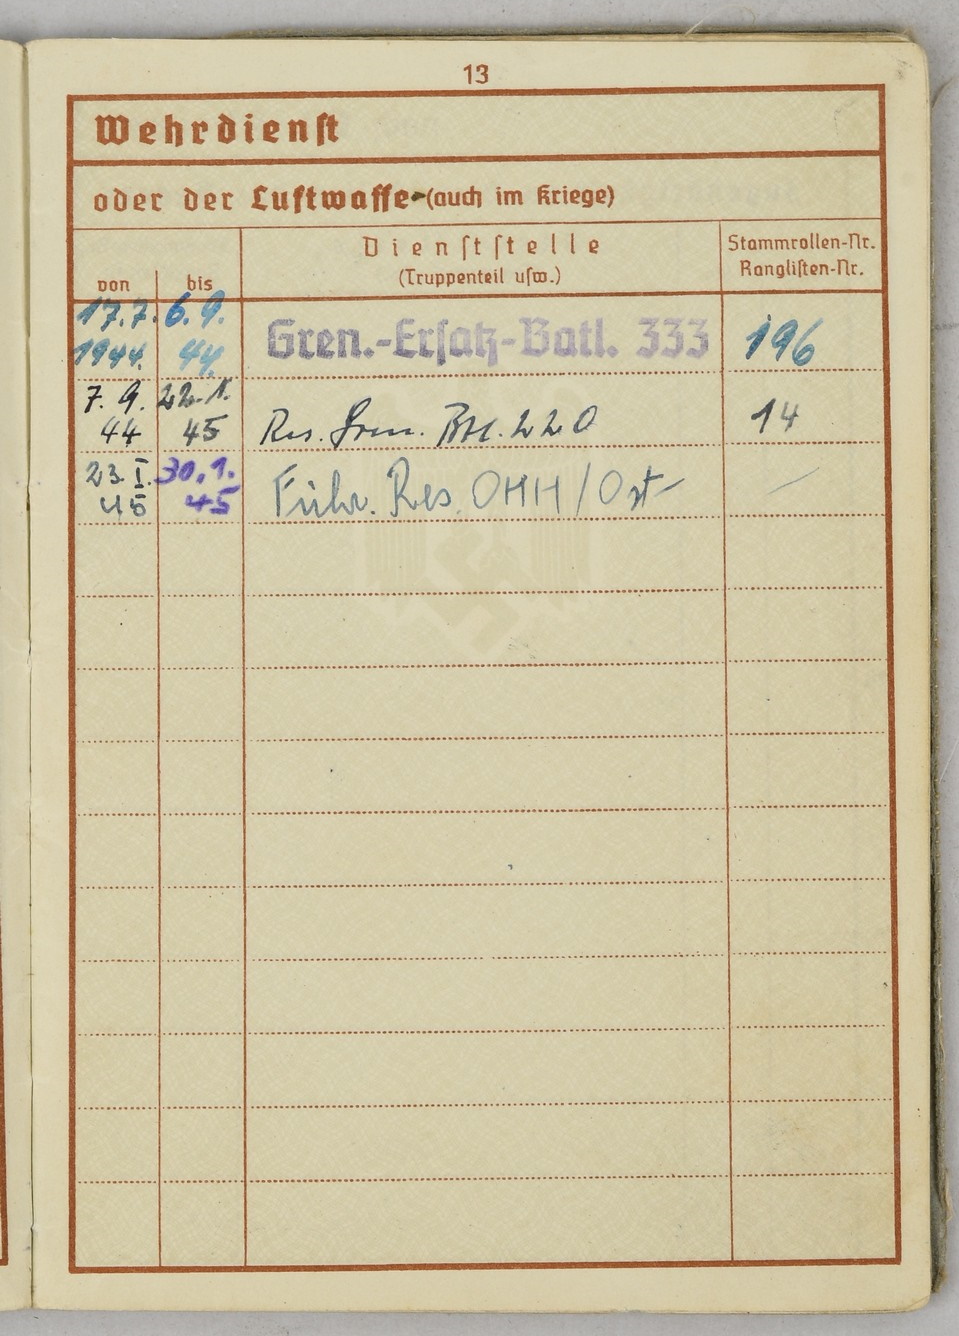 13
Wehrdienst
oder der Luftwaffe (auch im Kriege)
Dienststelle
(Truppenteil usw.)
Stammrollen-Nr.
Ranglisten-Nr.
von bis
17.7. 6.9.
1944. 44. Gren.-Ersatz-Batl. 333 196
7.9. 22.1.
44 45 Res. Gren. Btl. 220 14
23.I. 30.1.
45 45 Führ. Res. OHH/Ost